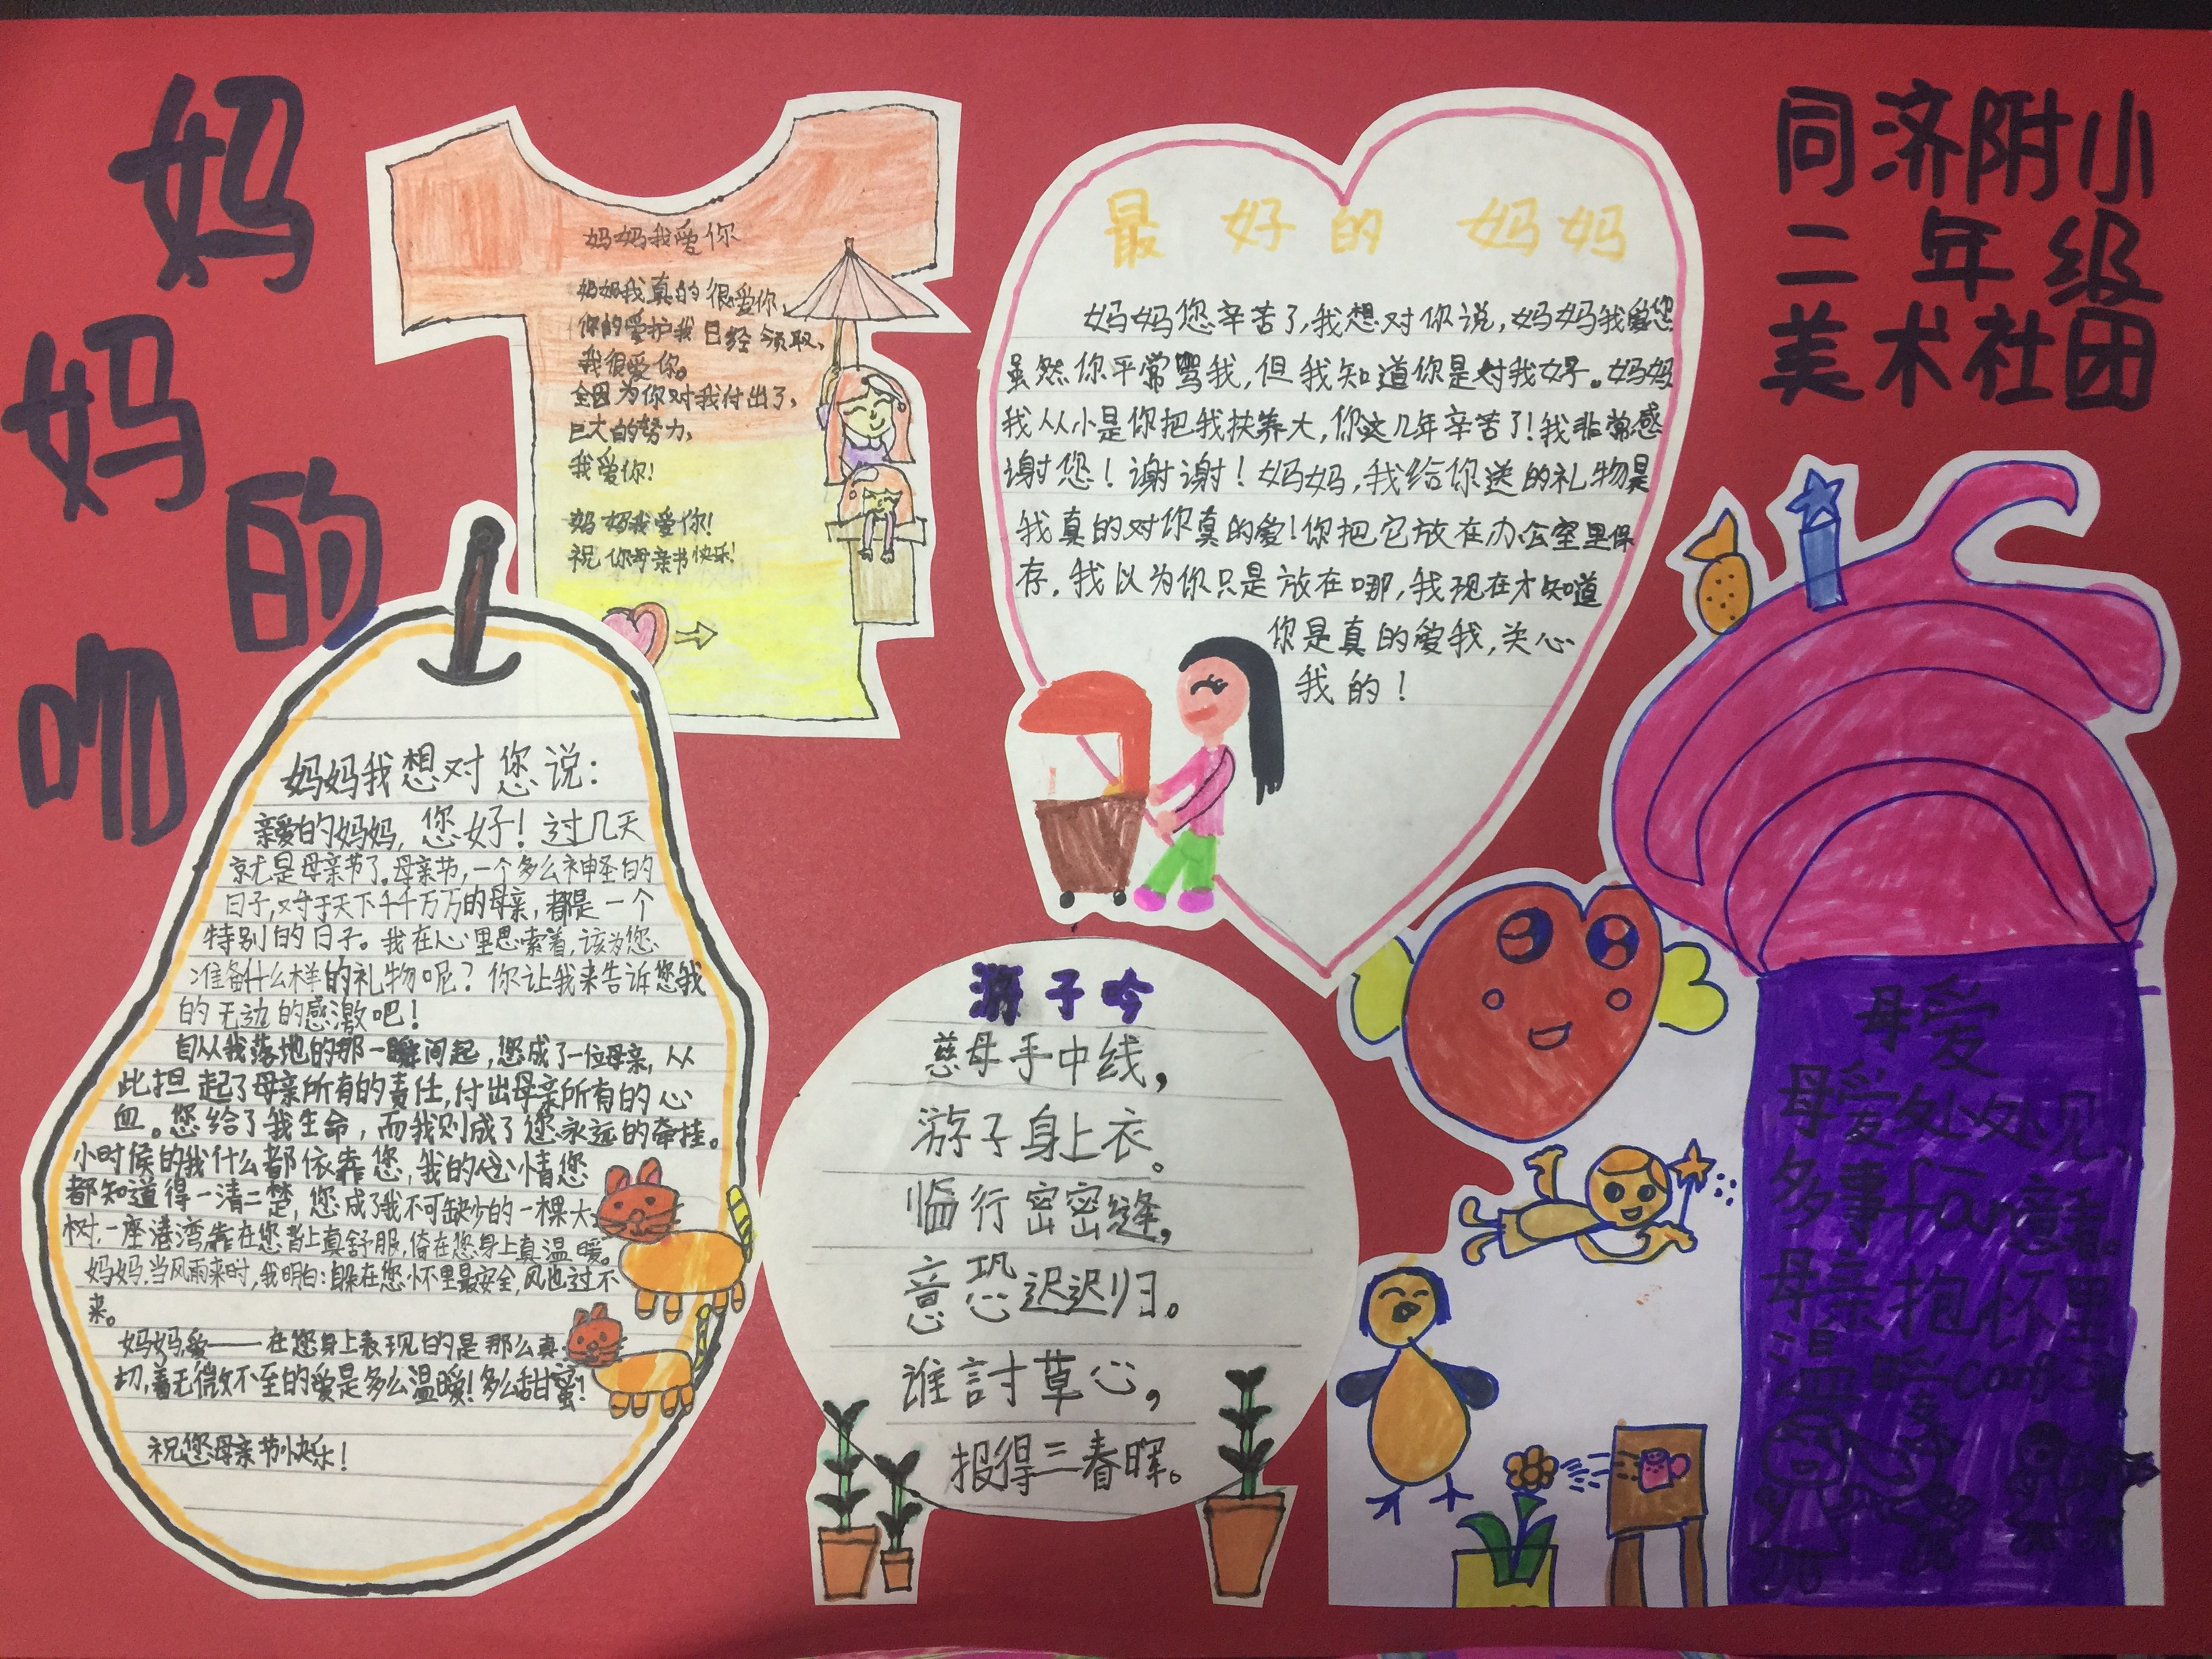 妈
妈
的
吻
同济附小
二年级
美术社团
妈妈我爱你
妈妈我真的很爱你,
你的爱护我已经领取,
我很爱你。
全因为你对我付出了,
巨大的努力,
我爱你!
妈妈我爱你!
祝你母亲节快乐!
最好的妈妈
妈妈您辛苦了,我想对你说,妈妈我爱您
虽然你平常骂我,但我知道你是对我好。妈妈
我从小是你把我扶养大,你这几年辛苦了!我非常感
谢您!谢谢!妈妈,我给你送的礼物是
我真的对你真的爱!你把它放在办公室里保
存,我以为你只是放在哪,我现在才知道
你是真的爱我,关心
我的!
妈妈我想对您说:
亲爱的妈妈,您好!过几天
就是母亲节了。母亲节,一个多么神圣的
日子,对于天下千千万万的母亲,都是一个
特别的日子。我在心里思索着,该为您
准备什么样的礼物呢?你让我来告诉您我
的无边的感激吧!
自从我落地的那一瞬间起,您成了一位母亲,从
此担起了母亲所有的责任,付出母亲所有的心
血。您给了我生命,而我则成了您永远的牵挂。
小时候的我什么都依靠您,我的心情您
都知道得一清二楚,您成了我不可缺少的一棵大
树,一座港湾靠在您背上真舒服,倚在您身上真温暖。
妈妈,当风雨来时,我明白:躲在您怀里最安全,风也过不
来。
妈妈,爱——在您身上表现的是那么真
切,着无微不至的爱是多么温暖!多么甜蜜!
祝您母亲节快乐!
游子吟
慈母手中线,
游子身上衣。
临行密密缝,
意恐迟迟归。
谁討草心,
报得三春晖。
母爱
母爱处处见,
多事fan意看。
母亲抱怀里
温暖cang